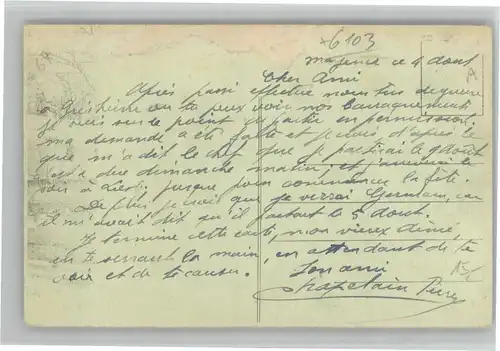 6103
Mayence ce 4 Aout
Cher Ami
Après avoir effectué nous tirs de guerre
a Griesheim ou tu peux voir nos barraquements
je suis sur le point de partir en permission.
ma demande a été faite et je crois d'après ce
que m'a dit le chef que je partirai le 9 Aout
c'est a dire dimanche matin, et j'arriverai
pour commencer la fête.
De plus je crois que je verrai Germain, car
il m'avait dit qu'il partait le 5 Aout.
Je termine cette carte, mon vieux Aimé,
en te serrant la main, en attendant de te
voir et de te causer.
Ton ami
Chapelain Pierre